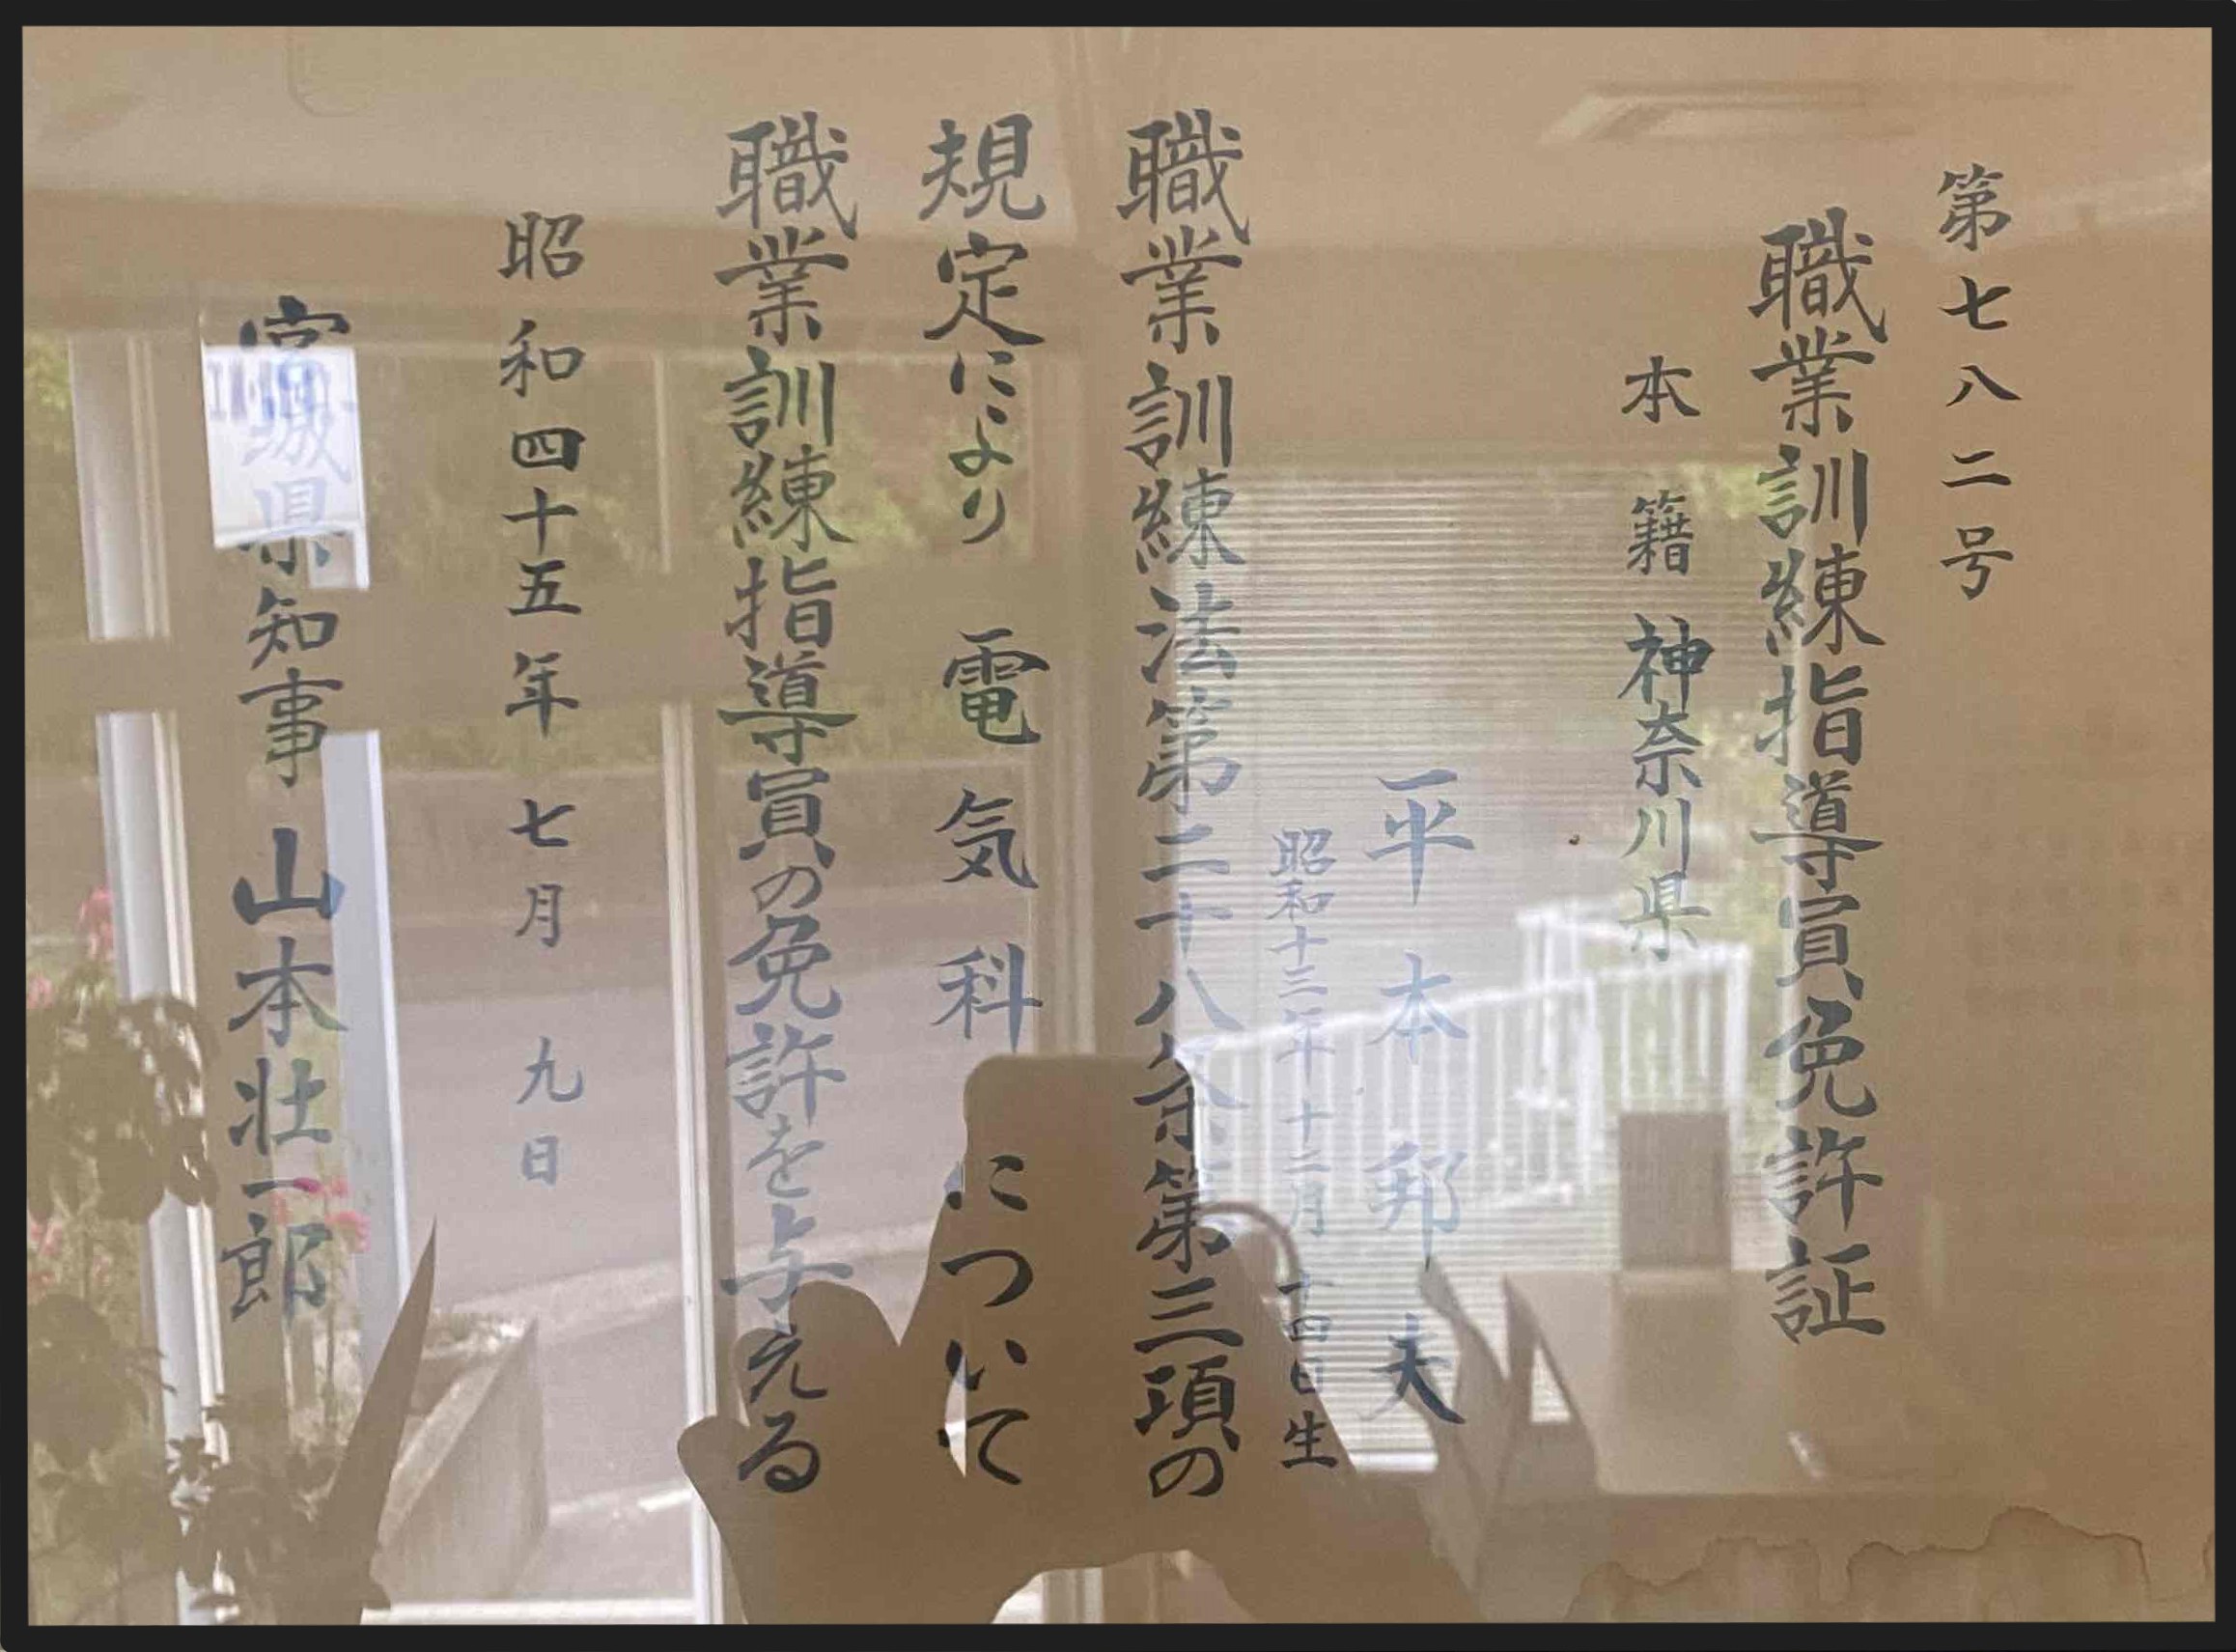 第七八二号
職業訓練指導員免許証
本籍 神奈川県
平本邦夫
昭和十三年十二月十四日生
職業訓練法第二十八条第三項の
規定により 電気科 について
職業訓練指導員の免許を与える
昭和四十五年七月九日
宮城県知事 山本壮一郎